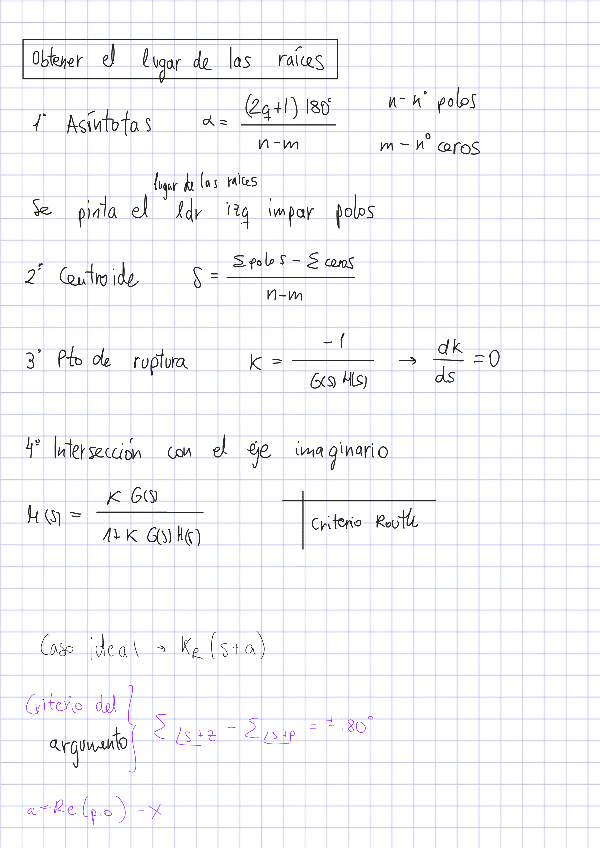 Obtener el lugar de las raíces
1° Asíntotas α = (2q+1) 180° / n-m
n - n° polos
m - n° ceros
lugar de las raíces
Se pinta el ldr izq impar polos
2° Centroide δ = Σ polos - Σ ceros / n-m
3° Pto de ruptura K = -1 / G(s) H(s) → dk / ds = 0
4° Intersección con el eje imaginario
M(s) = K G(s) / 1+ K G(s) H(s)
Criterio Routh
Caso ideal → KR (s+a)
Criterio del argumento } Σ ∠s+z - Σ ∠s+p = ±180°
a = Re(p.o) - x